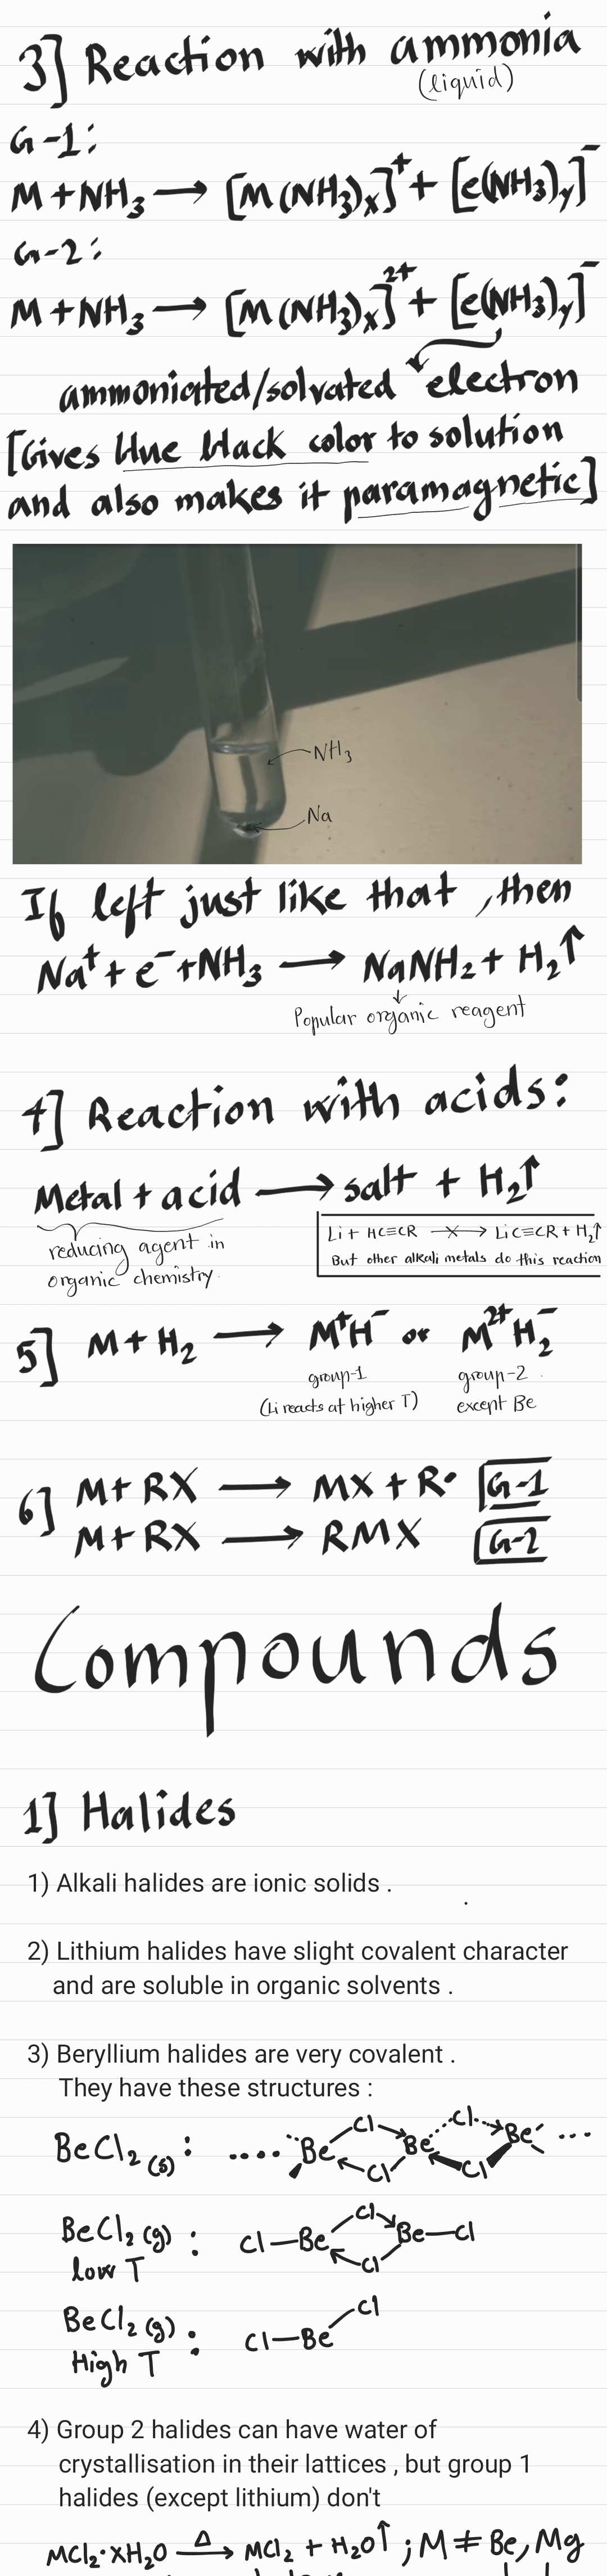 3] Reaction with ammonia
(liquid)
G-1:
M + NH3 → [M(NH3)x]⁺ + [e(NH3)y]⁻
G-2:
M + NH3 → [M(NH3)x]²⁺ + [e(NH3)y]⁻
ammoniated/solvated electron
[Gives blue black color to solution
and also makes it paramagnetic]
NH3
Na
If left just like that, then
Na⁺ + e⁻ + NH3 → NaNH2 + H2↑
Popular organic reagent
4] Reaction with acids:
Metal + acid → salt + H2↑
reducing agent in
organic chemistry
Li + HC≡CR -x→ LiC≡CR + H2↑
But other alkali metals do this reaction
5] M + H2 → M⁺H⁻ or M²⁺H2⁻
group-1 group-2
(Li reacts at higher T) except Be
6] M + RX → MX + R• G-1
M + RX → RMX G-2
Compounds
1] Halides
1) Alkali halides are ionic solids .
2) Lithium halides have slight covalent character
and are soluble in organic solvents .
3) Beryllium halides are very covalent .
They have these structures :
BeCl2(s) : .... Be Cl Cl Be Cl Cl Be ...
BeCl2(g) : Cl—Be Cl Cl Be—Cl
low T
BeCl2(g) : Cl—Be—Cl
High T
4) Group 2 halides can have water of
crystallisation in their lattices , but group 1
halides (except lithium) don't
MCl2·xH2O Δ→ MCl2 + H2O↑ ; M ≠ Be, Mg